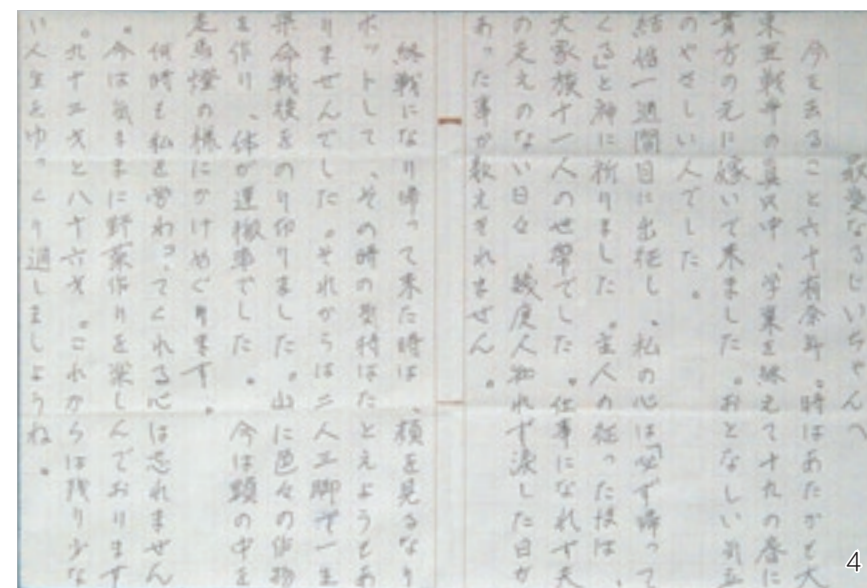 敬愛なるじいちゃんへ
今を去ること六十有余年。時はあたかも大
東亜戦争の真只中、学業を終えて十九の春に
貴方の元に嫁いで来ました。おとなしい
のやさしい人でした。
結婚一週間目に出征し、私の心は「必ず帰って
くる」と神に祈りました。主人の征った後は
大家族十一人の世帯でした。仕事になれず
の支えのない日々、幾度人知れず涙した日が
あった事か数えきれません。
終戦になり帰って来た時は、顔を見るなり
ホットして、その時の気持はたとえようもあ
りませんでした。それからは二人三脚で一生
懸命戦後をのり切りました。山に色々の作物
を作り、体が運搬車でした。今は頭の中を
走馬燈の様にかけめぐります。
何時も私を労わってくれる心は忘れません
。今は気ままに野菜作りを楽しんでおります
。九十二才と八十六才。これからは残り少な
い人生をゆっくり過しましようね。
4